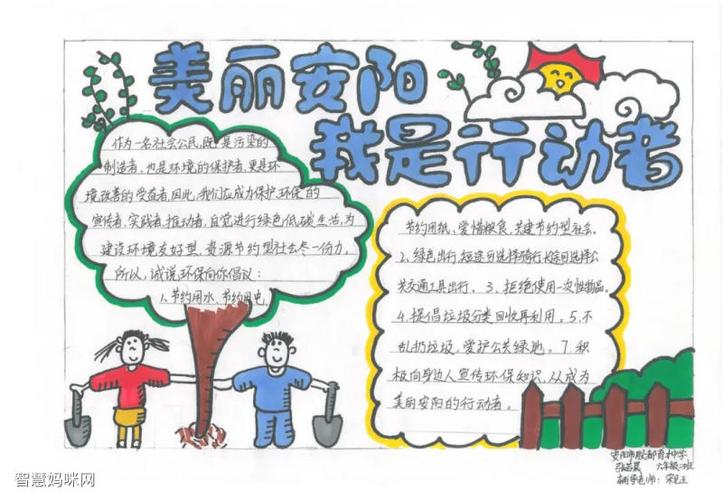 美丽安阳
我是行动者
作为一名社会公民,既是污染的
制造者,也是环境的保护者,更是环
境改善的受益者,因此,我们应成为保护环保的
宣传者,实践者,推动者,自觉进行绿色低碳生活,为
建设环境友好型、资源节约型社会尽一份力。
所以,诚说环保向你倡议:
1、节约用水、节约用电、
节约用纸、爱惜粮食、共建节约型社会。
2、绿色出行,短途可选择骑行,长途可选择公
共交通工具出行。3、拒绝使用一次性物品。
4、提倡垃圾分类回收再利用。5、不
乱扔垃圾,爱护公共绿地。7、积
极向身边人宣传环保知识,从成为
美丽安阳的行动者。
六年级
辅导老师:
智慧妈咪网